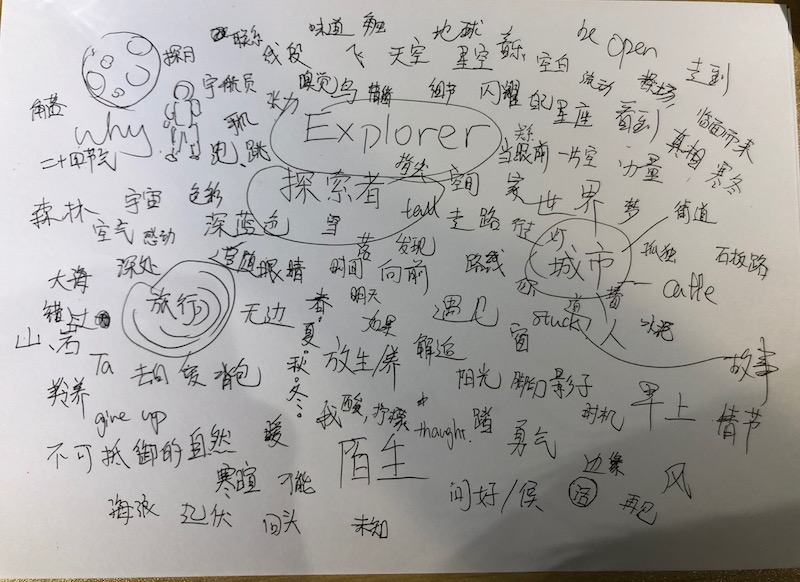 联系 线段 味道 触 地球 be open
探月 飞 天空 星空 音乐 空白 走到
宇航员 张力 嗅觉 鸟 情绪 细节 闪耀 星座 看到 流动 临面而来
why 跑、跳 Explorer 当眼前一片空 力量 真相 寒冬
二十四节气
森林 宇宙 色彩 探索者 空间 家 世界 梦 街道
空气 感动 深蓝色 雪 tell 走路
大海 深处 眼睛 时间 落 发现 向前 路线 城市 孤独 石板路
错过 旅行 无边 春、夏、秋、冬、 明天 遇见 caffe
山、岩 如果 窗 stuck 人 水泥
Ta 去回 爱 背包 放生/养 解迫 阳光 脚印 影子 故事
羚养 give up 我 酸,柠檬 thaught. 踏 勇气 时机 早上 情节
不可抵御的自然 暖 陌生 边缘
寒暄 可能 问好/候 再见 风
海浪 起伏 回头 未知